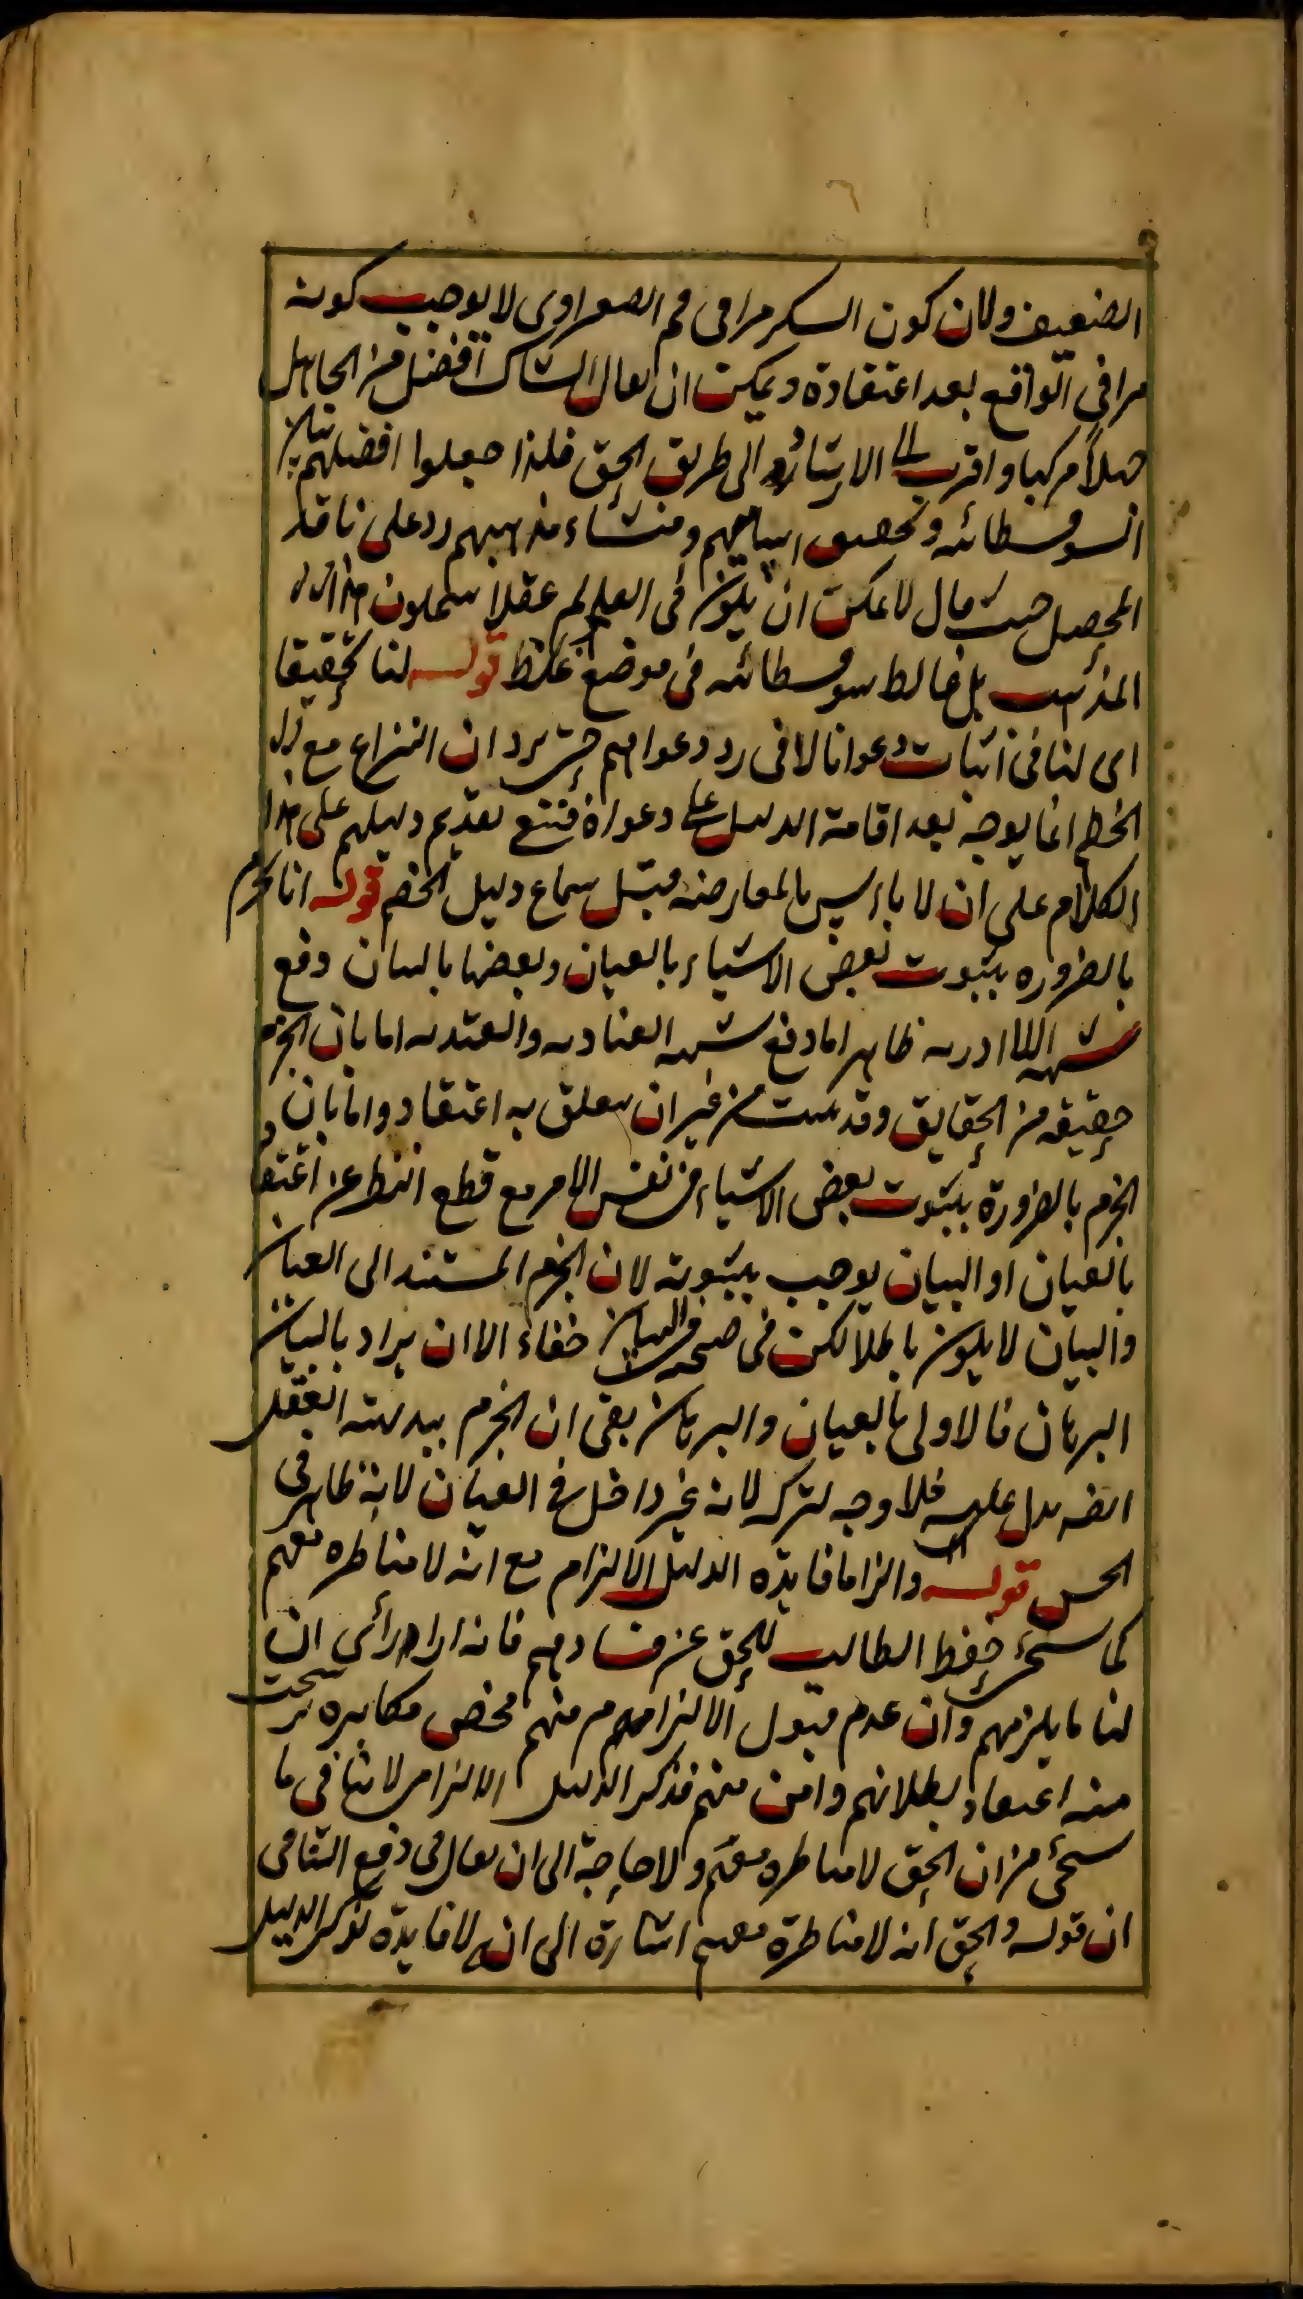 الضعيف ولان كون السكر مرا في فم الصفراوى لا يوجب كونه
مرا في الواقع بعد اعتقاده ويمكن ان يقال الشاك افضل من الجاهل
جهلاً مركبا واقرب الى الارشاد الى طريق الحق فلذا جعلوا افضلهم
السوفسطائيه وتحصيل اساميهم ومنشاء مذاهبهم رد على ناقد
المحصل حيث قال لا يمكن ان يكون في العالم عقلا ينتحلون هذا
المذهب بل غالط سوفسطائيه في موضع غلط قوله لنا تحقيقا
اى لنا في اثبات دعوانا لا في رد دعواهم حتى يرد ان النزاع مع
الخصم انما يوجه بعد اقامة الدليل على دعواه فتنع تقديم دليلهم على هذا
الكلام على ان لا باس بالمعارضه قبل سماع دليل الخصم قوله انا نجزم
بالضروره بثبوت بعض الاشياء بالعيان وبعضها بالبيان دفع
شبهه اللاادريه ظاهر اما دفع شبهه العناديه والعنديه اما بان الجزم
حقيقه من الحقايق وقد ثبت من غير ان يتعلق به اعتقاد واما بان
الجزم بالضرورة بثبوت بعض الاشياء في نفس الامر مع قطع النظر عن اعتقاد
بالعيان او البيان يوجب بثبوته لان الجزم المستند الى العيان
والبيان لا يكون باطلا لكن في صحه البيان خفاء الا ان يراد بالبيان
البرهان فالاولى بالعيان والبرهان بقى ان الجزم ببديهة العقل
ايضه يدل عليه فلا وجه لتركه لانه غير داخل في العيان لانه ظاهر في
الحس قوله والزاما فايده الدليل الالزام مع انه لا مناظره معهم
كما سيجئ حفظ الطالب للحق عن فسادهم فانه اذا رأى ان
لنا ما يلزمهم وان عدم قبول الالزام منهم محض مكابره
منه اعتقاد بطلانهم وامن منهم فذكر الدليل الالزامى لا ينافى ما
سيجئ من ان الحق لا مناظره معهم ولا حاجة الى ان يقال في دفع التنافى
ان قوله والحق انه لا مناظرة معهم اشارة الى انه لا فايدة لذكر الدليل